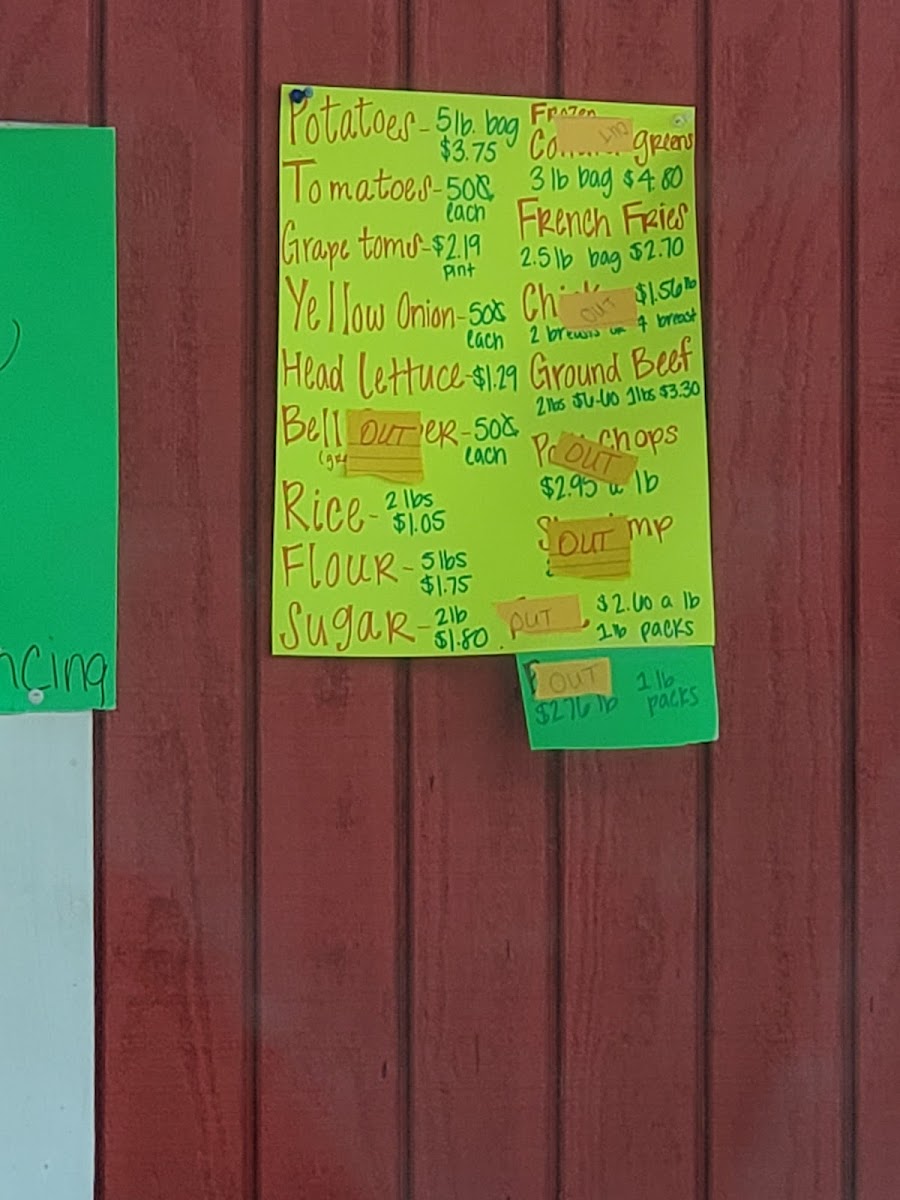 Potatoes - 5lb. bag
$3.75
Tomatoes - 50¢
each
Grape toms - $2.19
pint
Yellow Onion - 50¢
each
Head Lettuce - $1.29
Bell OUT er - 50¢
each
Rice - 2 lbs
$1.05
Flour - 5lbs
$1.75
Sugar - 2lb
$1.80
Frozen
Co OUT greens
3 lb bag $4.80
French Fries
2.5lb bag $2.70
Chi OUT $1.56 lb
2 breasts or 4 breast
Ground Beef
2lbs $6.60 1lbs $3.30
OUT Chops
$2.95 a lb
S OUT mp
OUT $2.60 a lb
1lb packs
OUT 1 lb
$2.76 lb packs
ncing